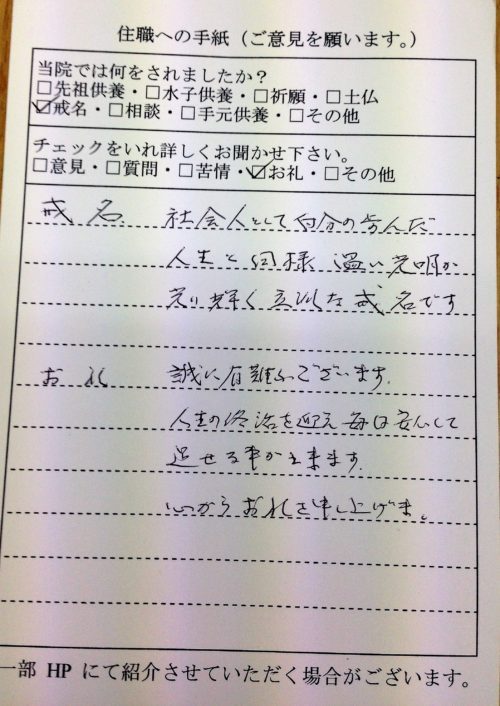 住職への手紙（ご意見を願います。）
当院では何をされましたか？
□先祖供養・□水子供養・□祈願・□土仏
☑戒名・□相談・□手元供養・□その他
チェックをいれ詳しくお聞かせ下さい。
□意見・□質問・□苦情・☑お礼・□その他
戒名 社会人として自分の歩んだ
人生と同様 温い光明が
光り輝く立派な戒名です
お礼 誠に有難うございます.
人生の終治を迎え毎日安心して
過せる事が出来ます.
心からお礼を申し上げます。
一部 HP にて紹介させていただく場合がございます。